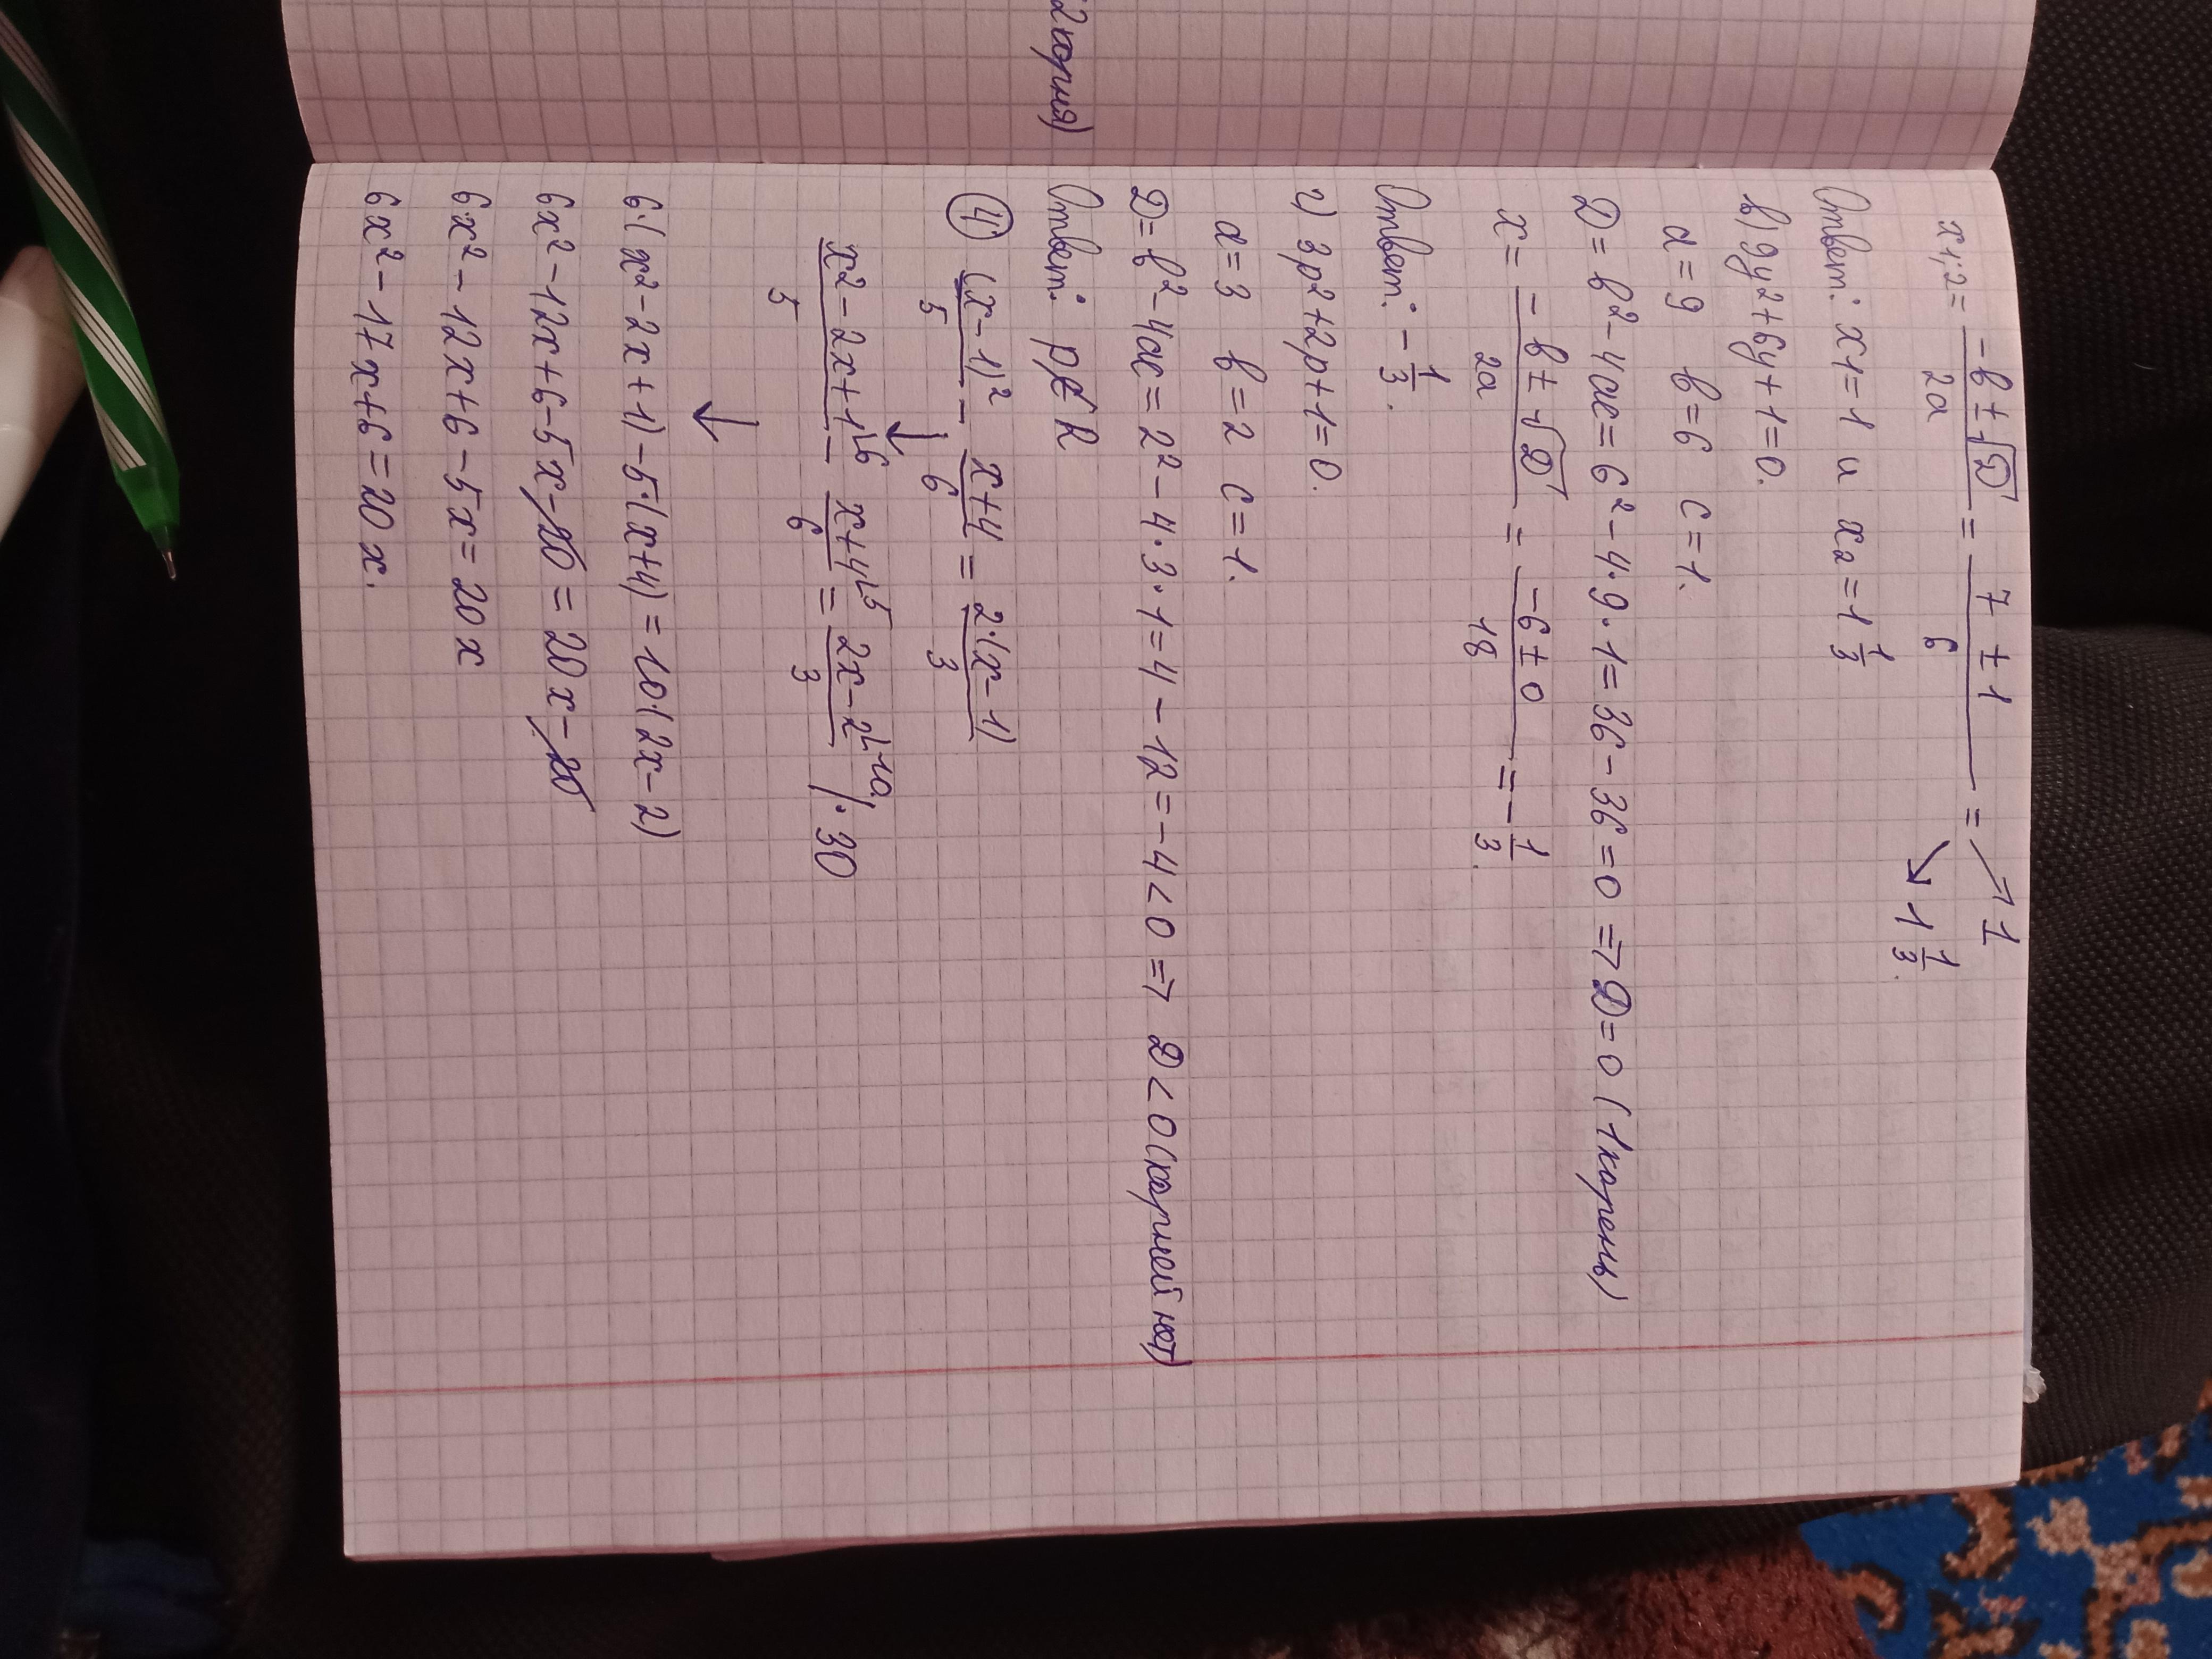 2 корня)
x1,2 = (-b ± √D)/2a = (7 ± 1)/6 = ↗ 1 ↘ 1 1/3.
Ответ: x1 = 1 и x2 = 1 1/3
в) 9y² + 6y + 1 = 0.
a = 9 b = 6 c = 1.
D = b² - 4ac = 6² - 4·9·1 = 36 - 36 = 0 => D = 0 (1 корень)
x = (-b ± √D)/2a = (-6 ± 0)/18 = -1/3.
Ответ: -1/3.
г) 3p² + 2p + 1 = 0.
a = 3 b = 2 c = 1.
D = b² - 4ac = 2² - 4·3·1 = 4 - 12 = -4 < 0 => D < 0 (корней нет)
Ответ: p∉R
④ (x-1)²/5 - (x+4)/6 = 2·(x-1)/3
↓
(x² - 2x + 1)/5 ⌊6 - (x+4)/6 ⌊5 = (2x-2)/3 ⌊10 | · 30
↓
6·(x² - 2x + 1) - 5·(x+4) = 10·(2x - 2)
6x² - 12x + 6 - 5x - 20 = 20x - 20
6x² - 12x + 6 - 5x = 20x
6x² - 17x + 6 = 20x.